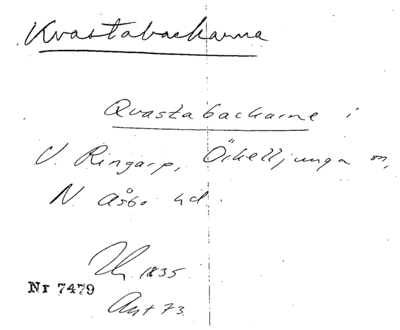 Kvastabackarna
Qvastabackarne i
V. Ringarp, Örkelljunga sn,
N. Åsbo hd.
1835
Nr 7479
Akt 73